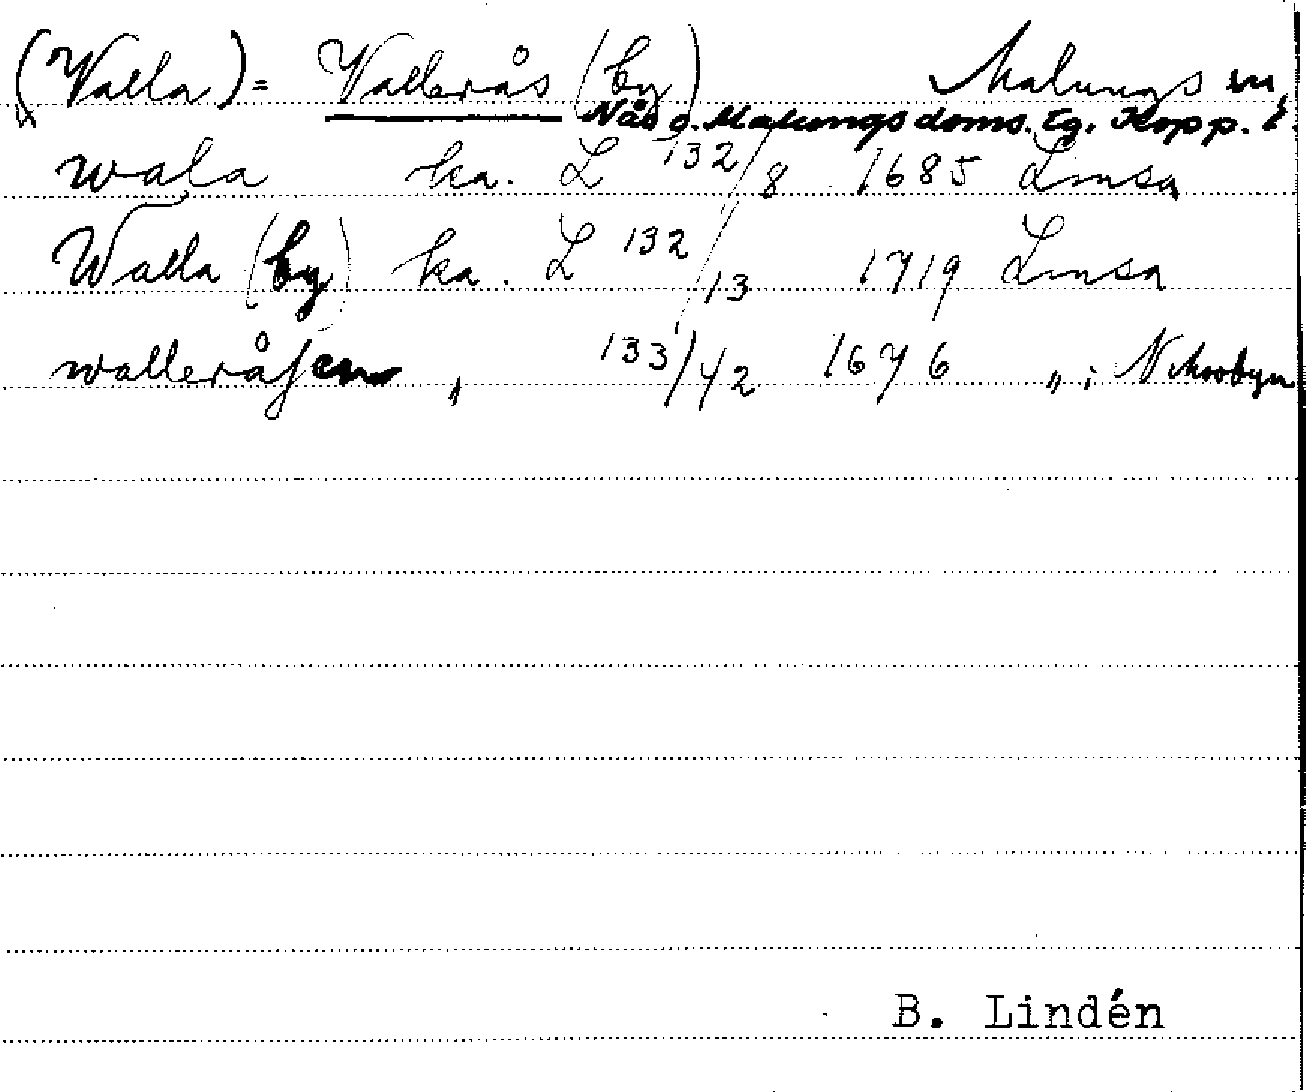 (Valla) = Vallerås (by) Malungs sn,
Nås o. Malungs doms. tg. Kopp. l.
wala ka. L 132/8 1685 Lmsa
Walla (by) ka. L 132/13 1719 Lmsa
walleråsen „ 133/42 1676 „ i
B. Lindén